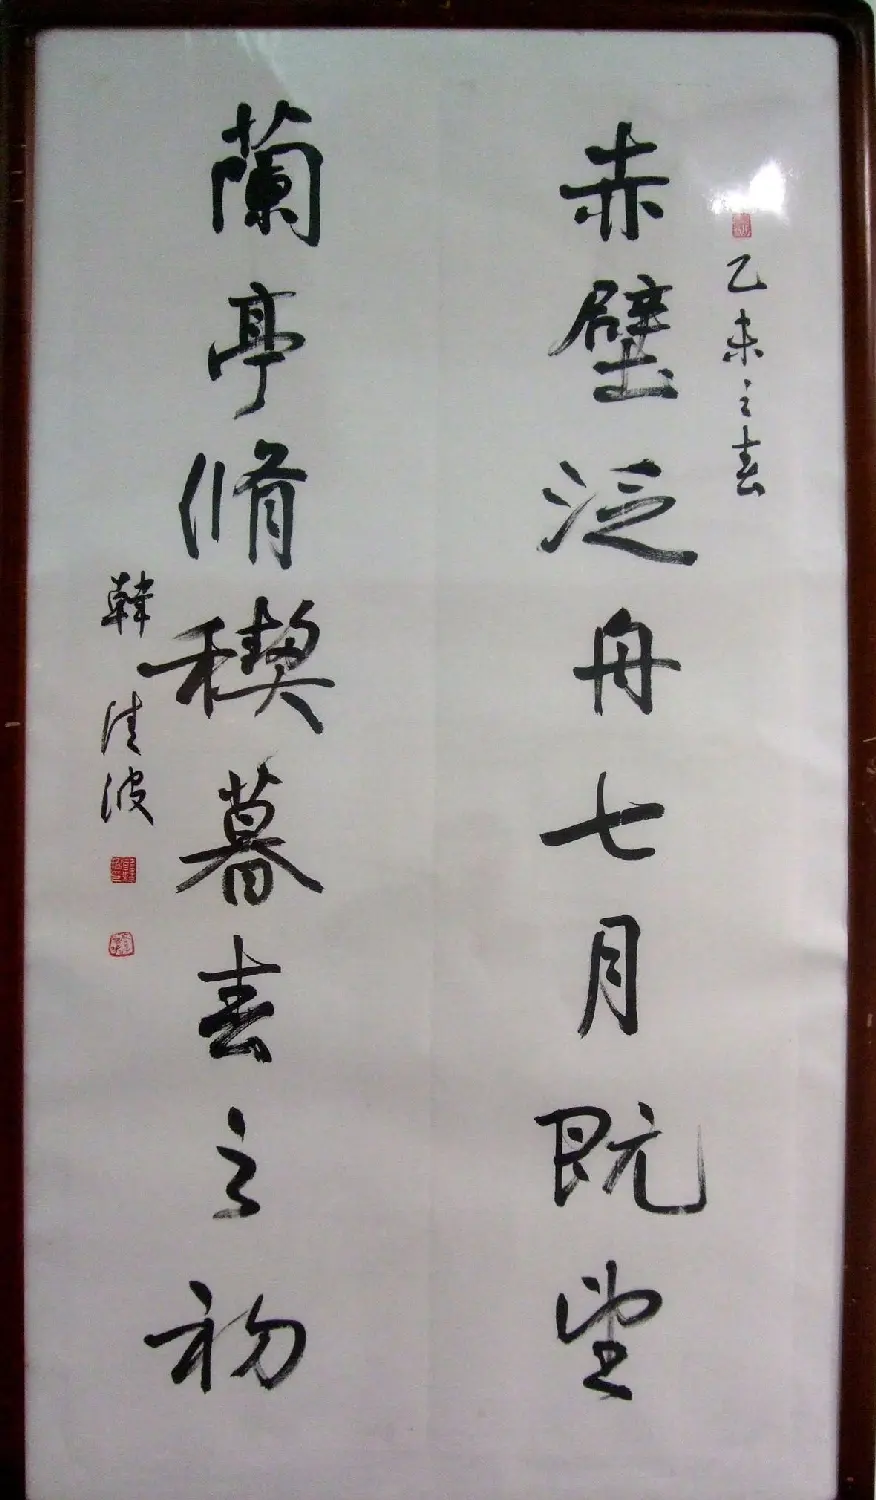 乙未之春
赤壁泛舟七月既望
蘭亭脩稧暮春之初
韓清波